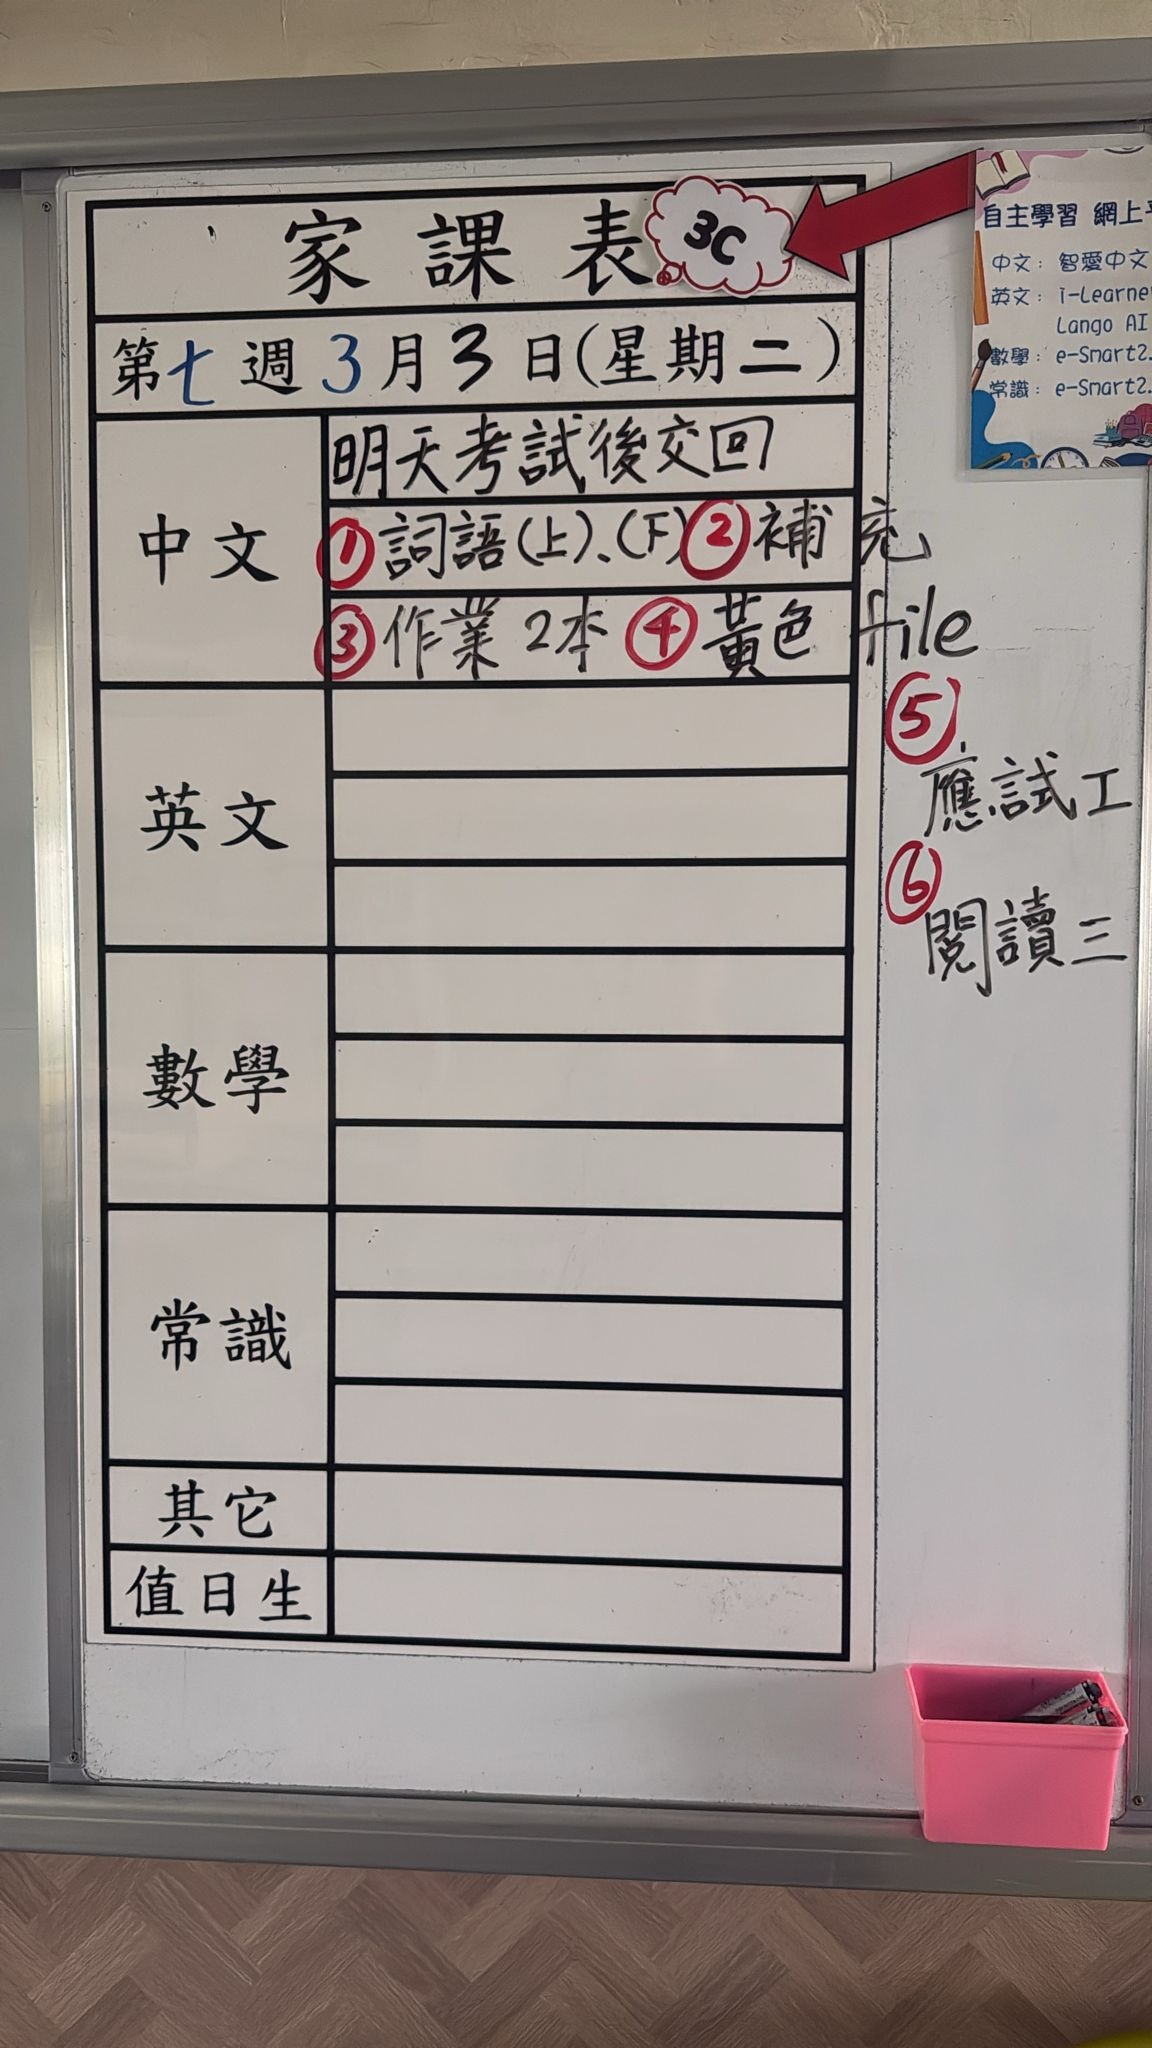 家課表 3C
第七週 3月3日(星期二)
中文
明天考試後交回
① 詞語(上)、(下) ② 補充
③ 作業 2本 ④ 黃色 file
⑤
應試工
⑥
閱讀三
英文
數學
常識
其它
值日生
自主學習 網上
中文: 智愛中文
英文: i-Learne
Lango AI
數學: e-Smart2.
常識: e-Smart2.